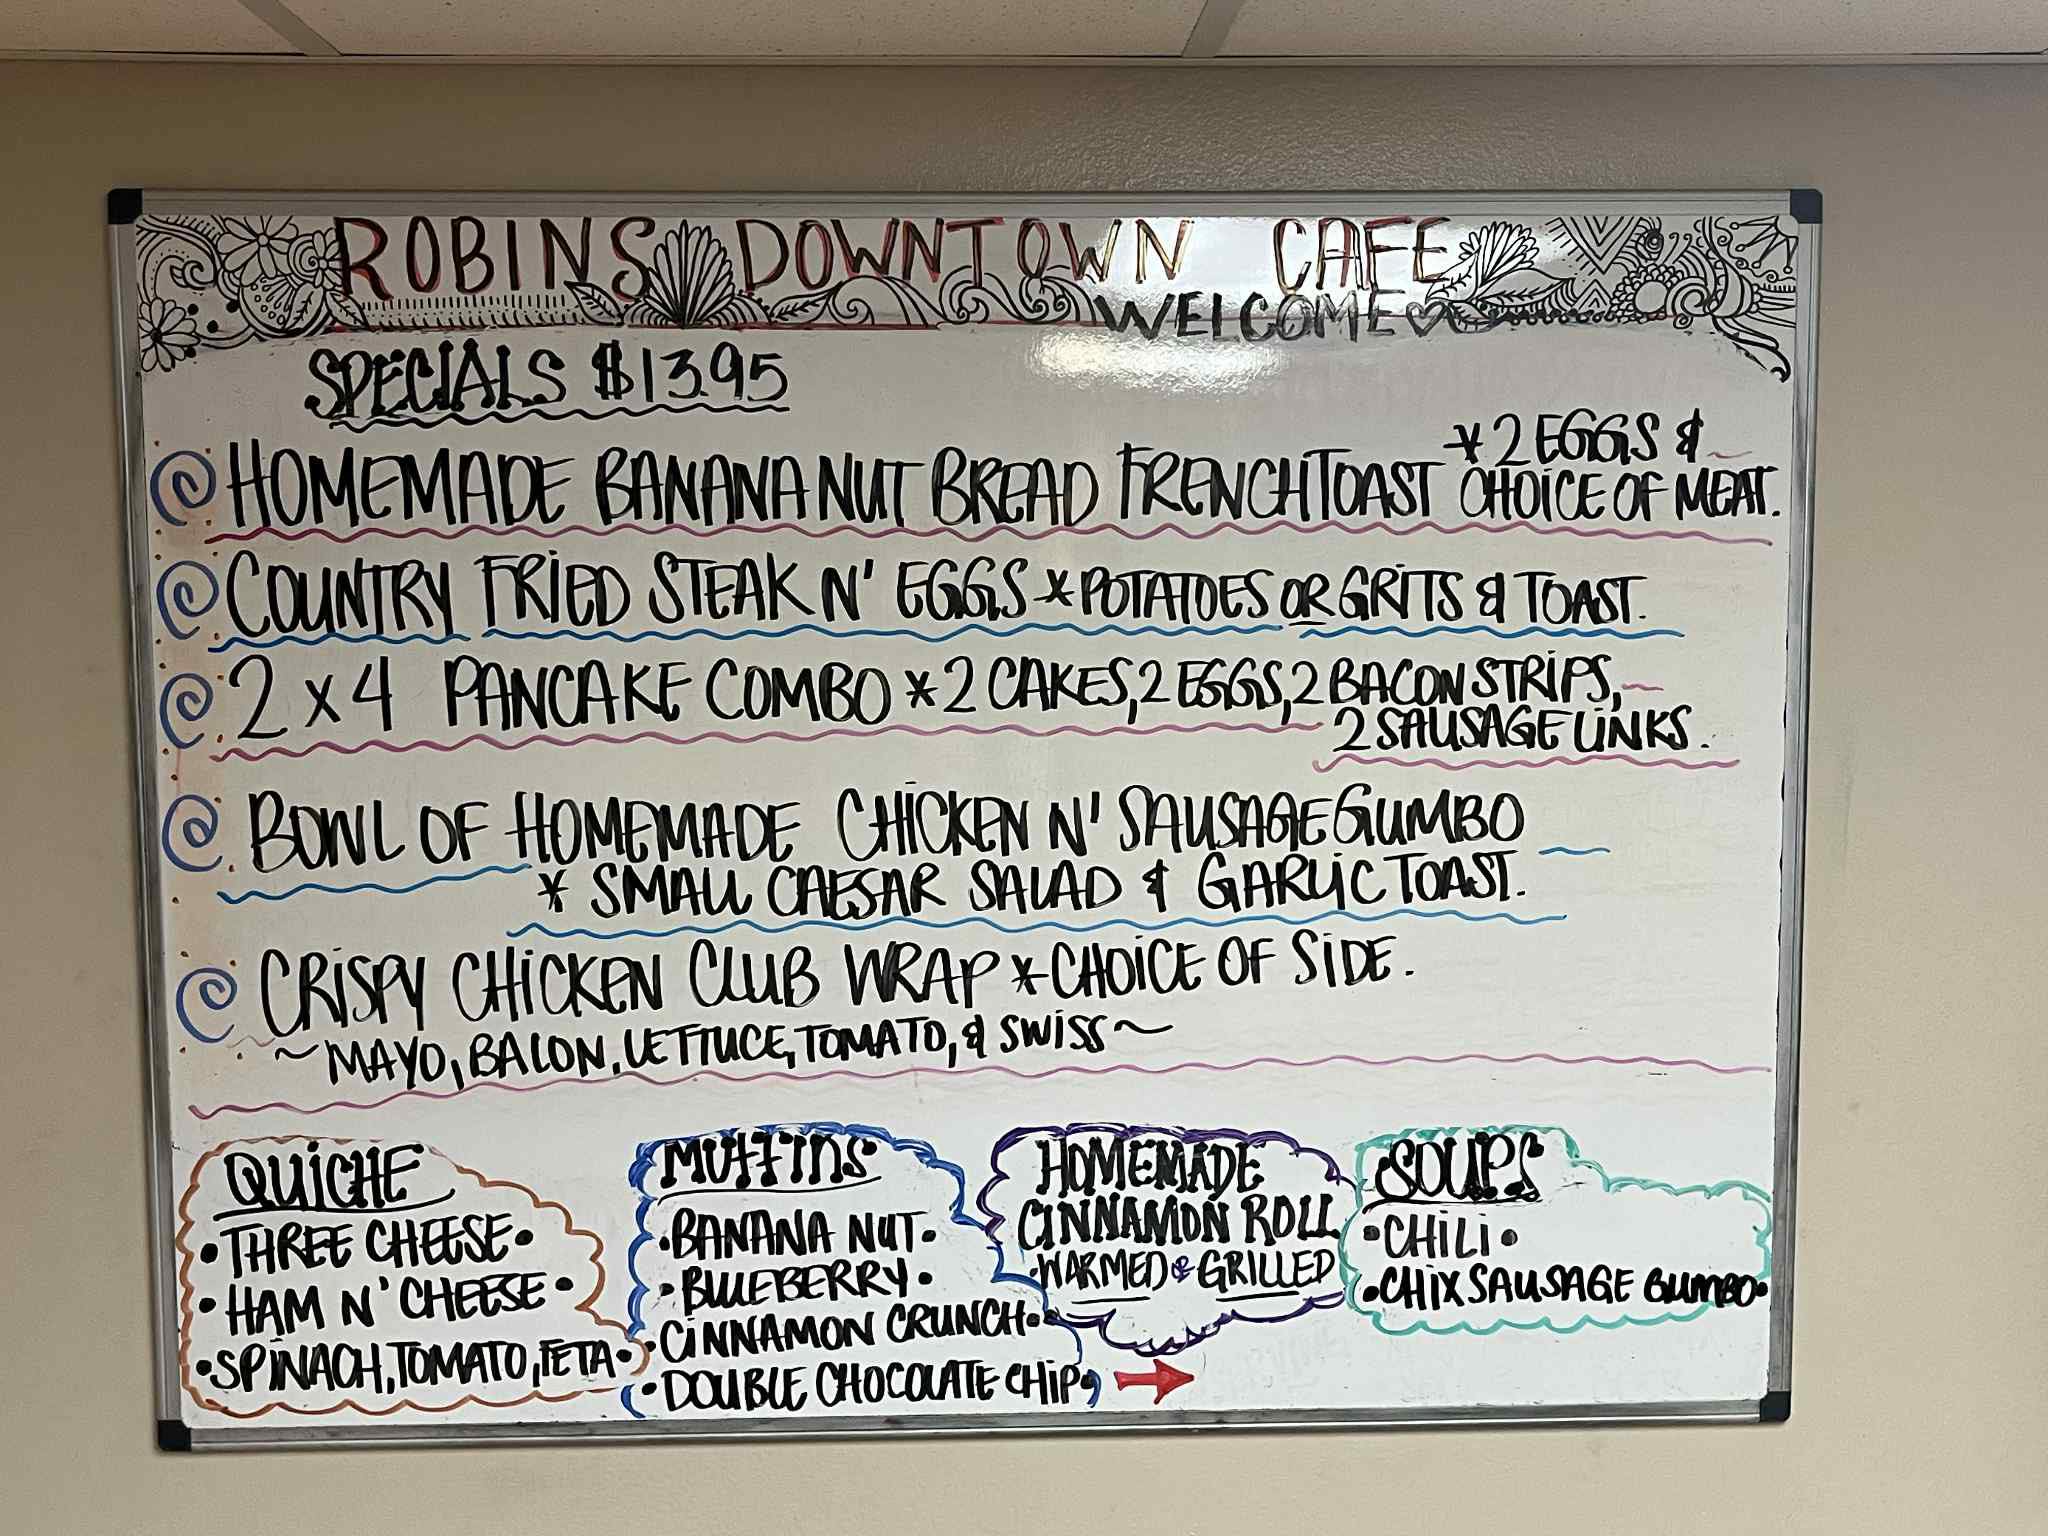 ROBINS DOWNTOWN CAFE
WELCOME
SPECIALS $13.95
* 2 EGGS &
HOMEMADE BANANA NUT BREAD FRENCH TOAST CHOICE OF MEAT.
COUNTRY FRIED STEAK N' EGGS * POTATOES OR GRITS & TOAST.
2 x 4 PANCAKE COMBO * 2 CAKES, 2 EGGS, 2 BACON STRIPS,
2 SAUSAGE LINKS.
BOWL OF HOMEMADE CHICKEN N' SAUSAGE GUMBO
* SMALL CAESAR SALAD & GARLIC TOAST.
CRISPY CHICKEN CLUB WRAP * CHOICE OF SIDE.
~ MAYO, BACON, LETTUCE, TOMATO, & SWISS ~
QUICHE
• THREE CHEESE •
• HAM N' CHEESE •
• SPINACH, TOMATO, FETA •
MUFFINS
• BANANA NUT •
• BLUEBERRY •
• CINNAMON CRUNCH •
• DOUBLE CHOCOLATE CHIP •
HOMEMADE
CINNAMON ROLL
• WARMED or GRILLED
SOUPS
• CHILI •
• CHIX SAUSAGE GUMBO •